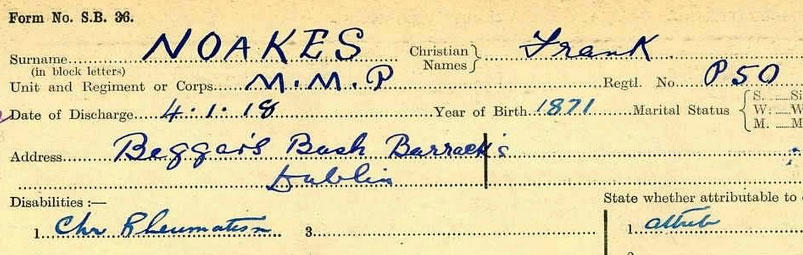 Form No. S.B. 36.
Surname NOAKES Christian Names Frank.
(in block letters)
Unit and Regiment or Corps M.M.P Regtl. No. P50
Date of Discharge 4.1.18 Year of Birth 1871 Marital Status { S. Si
W. W
M. M
Address Beggar's Bush Barracks
Dublin
Disabilities :— State whether attributable to
1. Chr Rheumatism 3. 1. attrib
2.